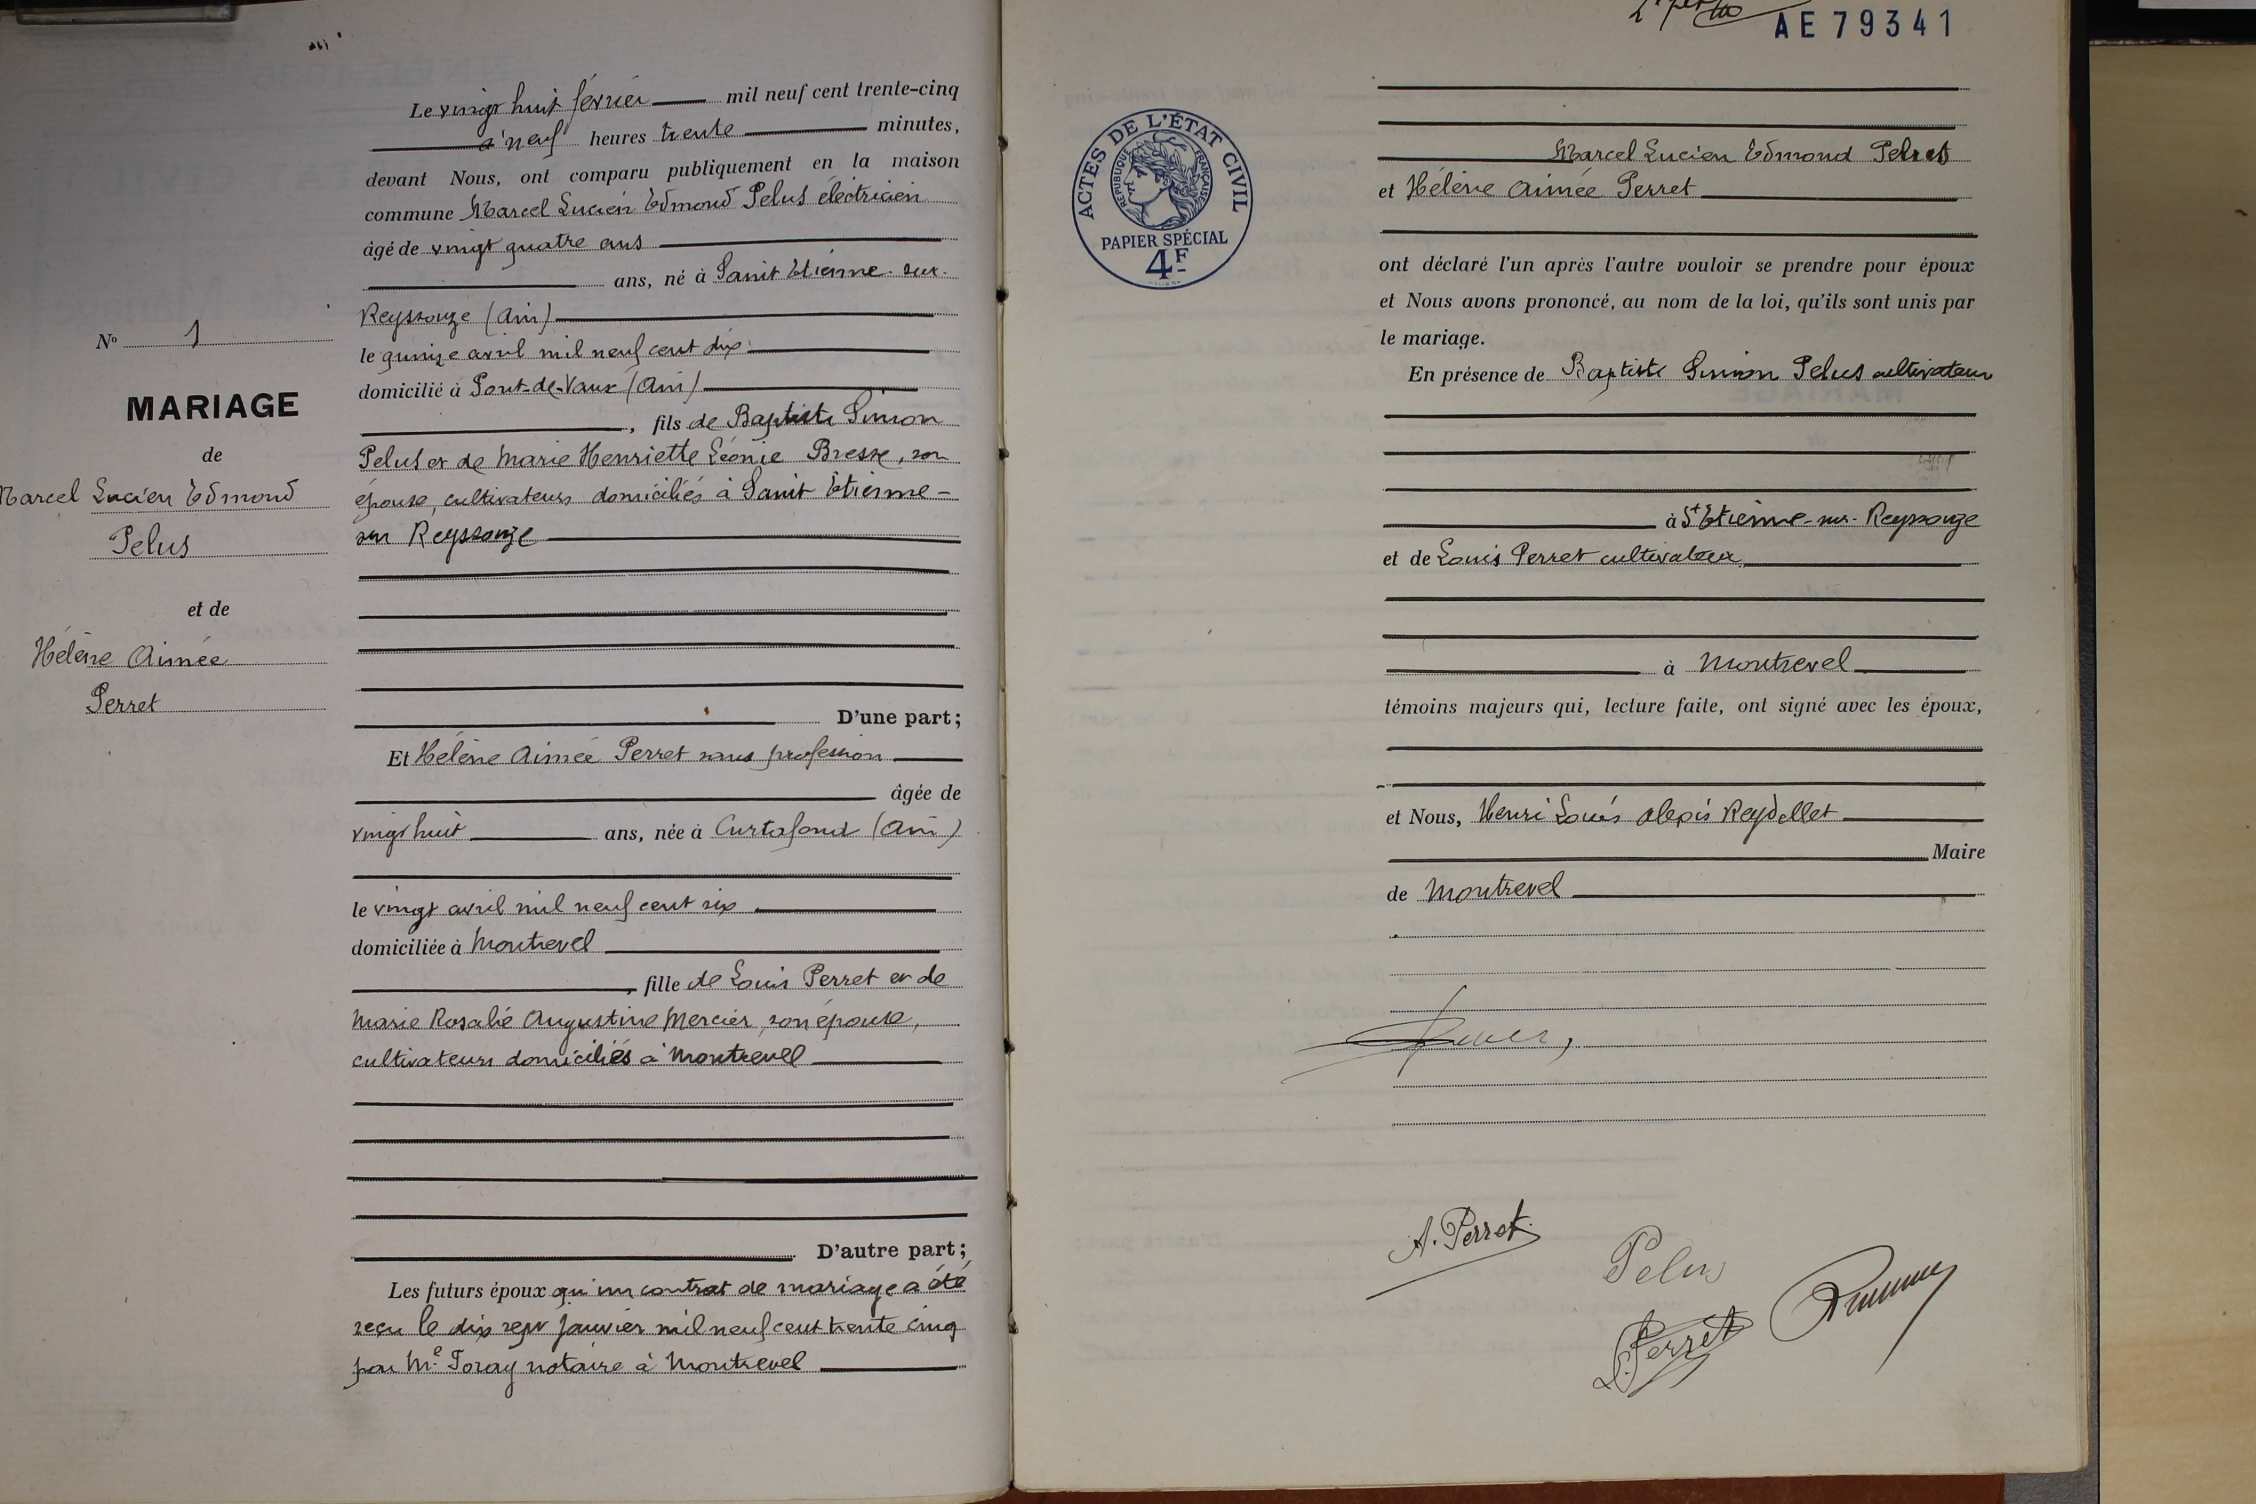 Le vingt huit février mil neuf cent trente-cinq
à neuf heures trente minutes,
devant Nous, ont comparu publiquement en la maison
commune Marcel Lucien Edmond Pelus électricien
âgé de vingt quatre ans
ans, né à Saint Etienne-sur-
Reyssouze (Ain)
le quinze avril mil neuf cent dix
domicilié à Pont-de-Vaux (Ain)
, fils de Baptiste Simon
Pelus et de Marie Henriette Léonie Bresse, son
épouse, cultivateurs domiciliés à Saint Etienne-
sur Reyssouze
D'une part;
Et Hélène Aimée Perret sans profession
âgée de
vingt huit ans, née à Curtafond (Ain)
le vingt avril mil neuf cent six
domiciliée à Montrevel
, fille de Louis Perret et de
Marie Rosalie Augustine Mercier, son épouse,
cultivateurs domiciliés à Montrevel
D'autre part;
Les futurs époux qu'un contrat de mariage a été
reçu le dix sept janvier mil neuf cent trente cinq
par Me Toray notaire à Montrevel
No 1
MARIAGE
de
Marcel Lucien Edmond
Pelus
et de
Hélène Aimée
Perret
AE 79341
ACTES DE L'ÉTAT CIVIL
RÉPUBLIQUE FRANÇAISE
PAPIER SPÉCIAL
4F
Marcel Lucien Edmond Pelus
et Hélène Aimée Perret
ont déclaré l'un après l'autre vouloir se prendre pour époux
et Nous avons prononcé, au nom de la loi, qu'ils sont unis par
le mariage.
En présence de Baptiste Simon Pelus cultivateur
à St Etienne-sur-Reyssouze
et de Louis Perret cultivateur
à Montrevel
témoins majeurs qui, lecture faite, ont signé avec les époux,
et Nous, Henri Louis Alexis Reydellet
Maire
de Montrevel
A. Perret
Pelus
L. Perret